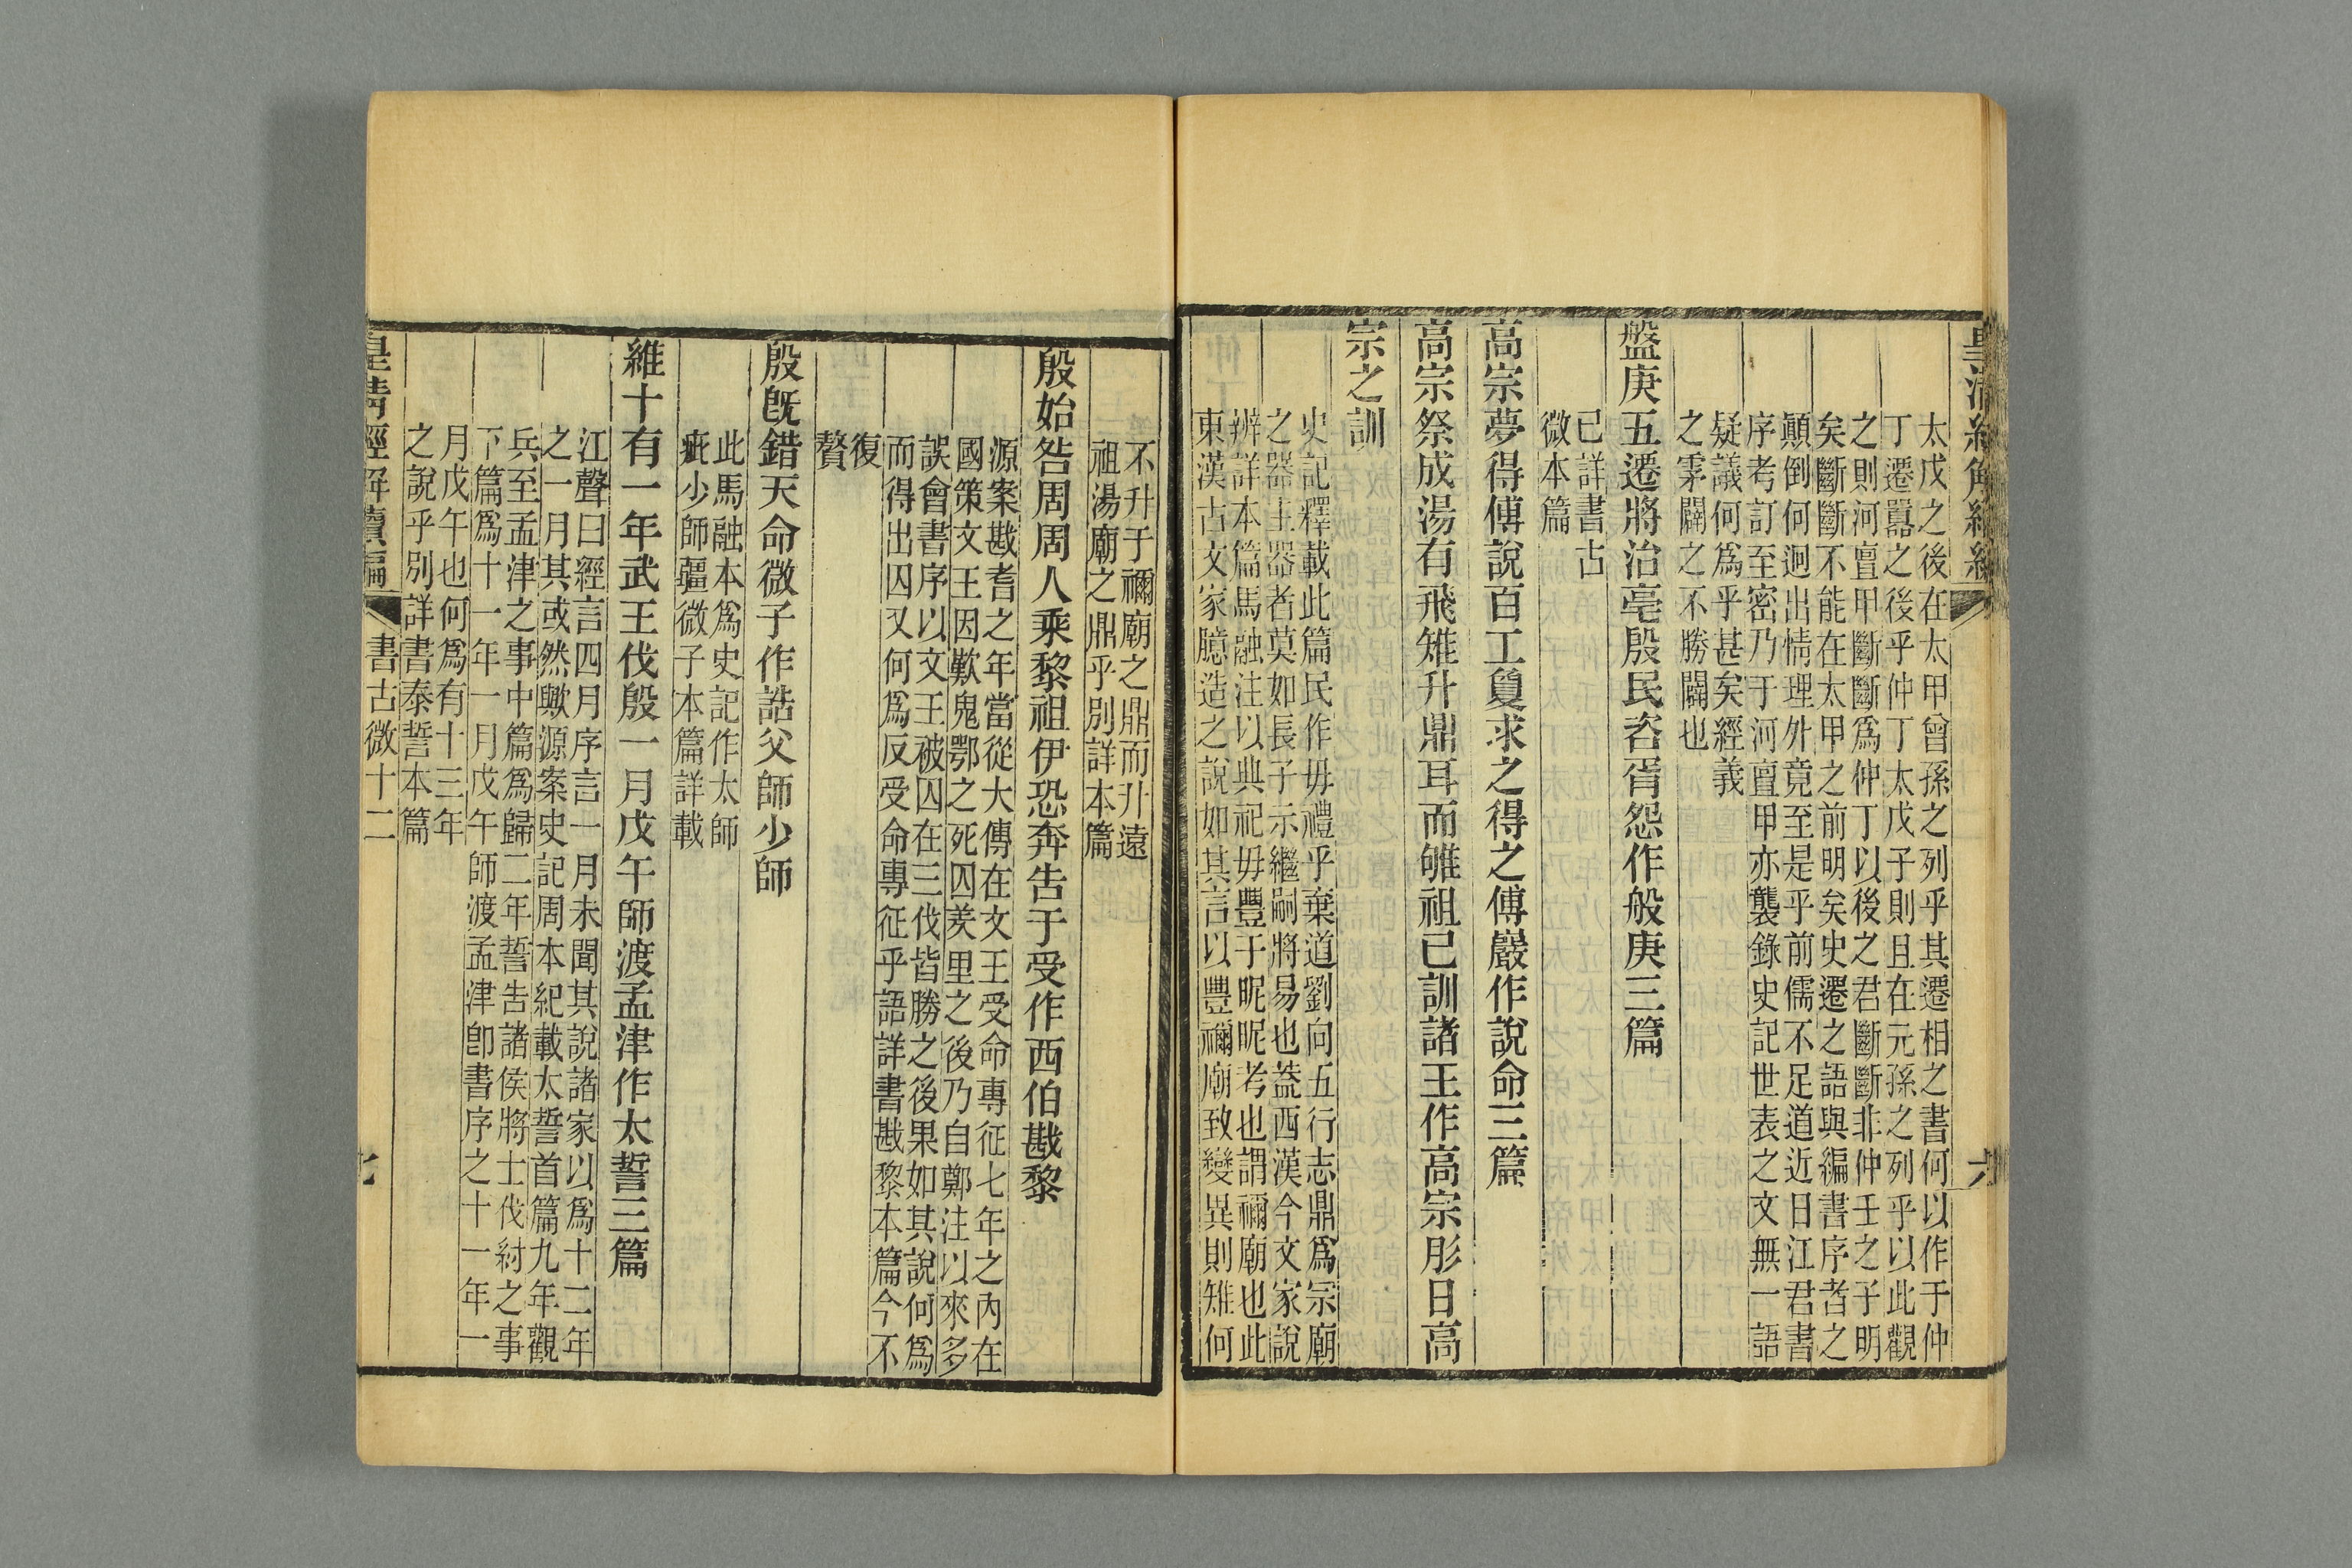 皇清經解續編
六
太戊之後在太甲曾孫之列乎其遷相之書何以作于仲
丁遷囂之後乎仲丁太戊子則且在元孫之列乎以此觀
之則河亶甲斷斷爲仲丁以後之君斷斷非仲壬之子明
矣斷斷不能在太甲之前明矣史遷之語與編書序者之
顚倒何迥出情理外竟至是乎前儒不足道近日江君書
序考訂至密乃于河亶甲亦襲錄史記世表之文無一語
疑議何爲乎甚矣經義
之雺闢之不勝闢也
盤庚五遷將治亳殷民咨胥怨作般庚三篇
已詳書古
微本篇
高宗夢得傅說百工敻求之得之傅巖作說命三篇
高宗祭成湯有飛雉升鼎耳而雊祖己訓諸王作高宗肜日高
宗之訓
史記釋載此篇民作毋禮乎棄道劉向五行志鼎爲宗廟
之器主器者莫如長子示繼嗣將易也葢西漢今文家說
辨詳本篇馬融注以典祀毋豐于昵昵考也謂禰廟也此
東漢古文家臆造之說如其言以豐禰廟致變異則雉何
不升于禰廟之鼎而升遠
祖湯廟之鼎乎別詳本篇
殷始咎周周人乘黎祖伊恐奔告于受作西伯戡黎
源案戡耆之年當從大傳在文王受命專征七年之內在
國策文王因歎鬼鄂之死囚羑里之後乃自鄭注以來多
誤會書序以文王被囚在三伐皆勝之後果如其說何爲
而得出囚又何爲反受命專征乎語詳書戡黎本篇今不
復
贅
殷旣錯天命微子作誥父師少師
此馬融本爲史記作太師
疵少師彊微子本篇詳載
維十有一年武王伐殷一月戊午師渡孟津作太誓三篇
江聲曰經言四月序言一月未聞其說諸家以爲十二年
之一月其或然歟源案史記周本紀載太誓首篇九年觀
兵至孟津之事中篇爲歸二年誓告諸侯將士伐紂之事
下篇爲十一年一月戊午師渡孟津卽書序之十一年一
月戊午也何爲有十三年
之說乎別詳書泰誓本篇
皇清經解續編
書古微十二
七